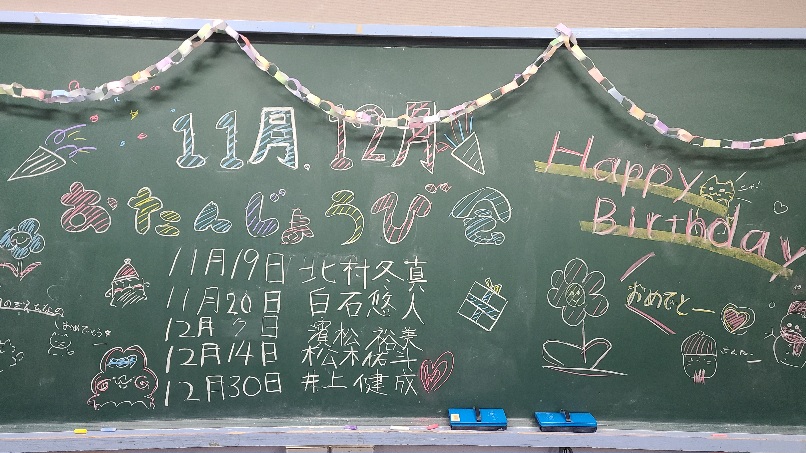 11月、12月
おたんじょうびを
Happy
Birthday
11月19日 北村久真
11月20日 白石悠人
12月 7日 濱松 裕美
12月14日 松木祐斗
12月30日 井上 健成
おめでとー